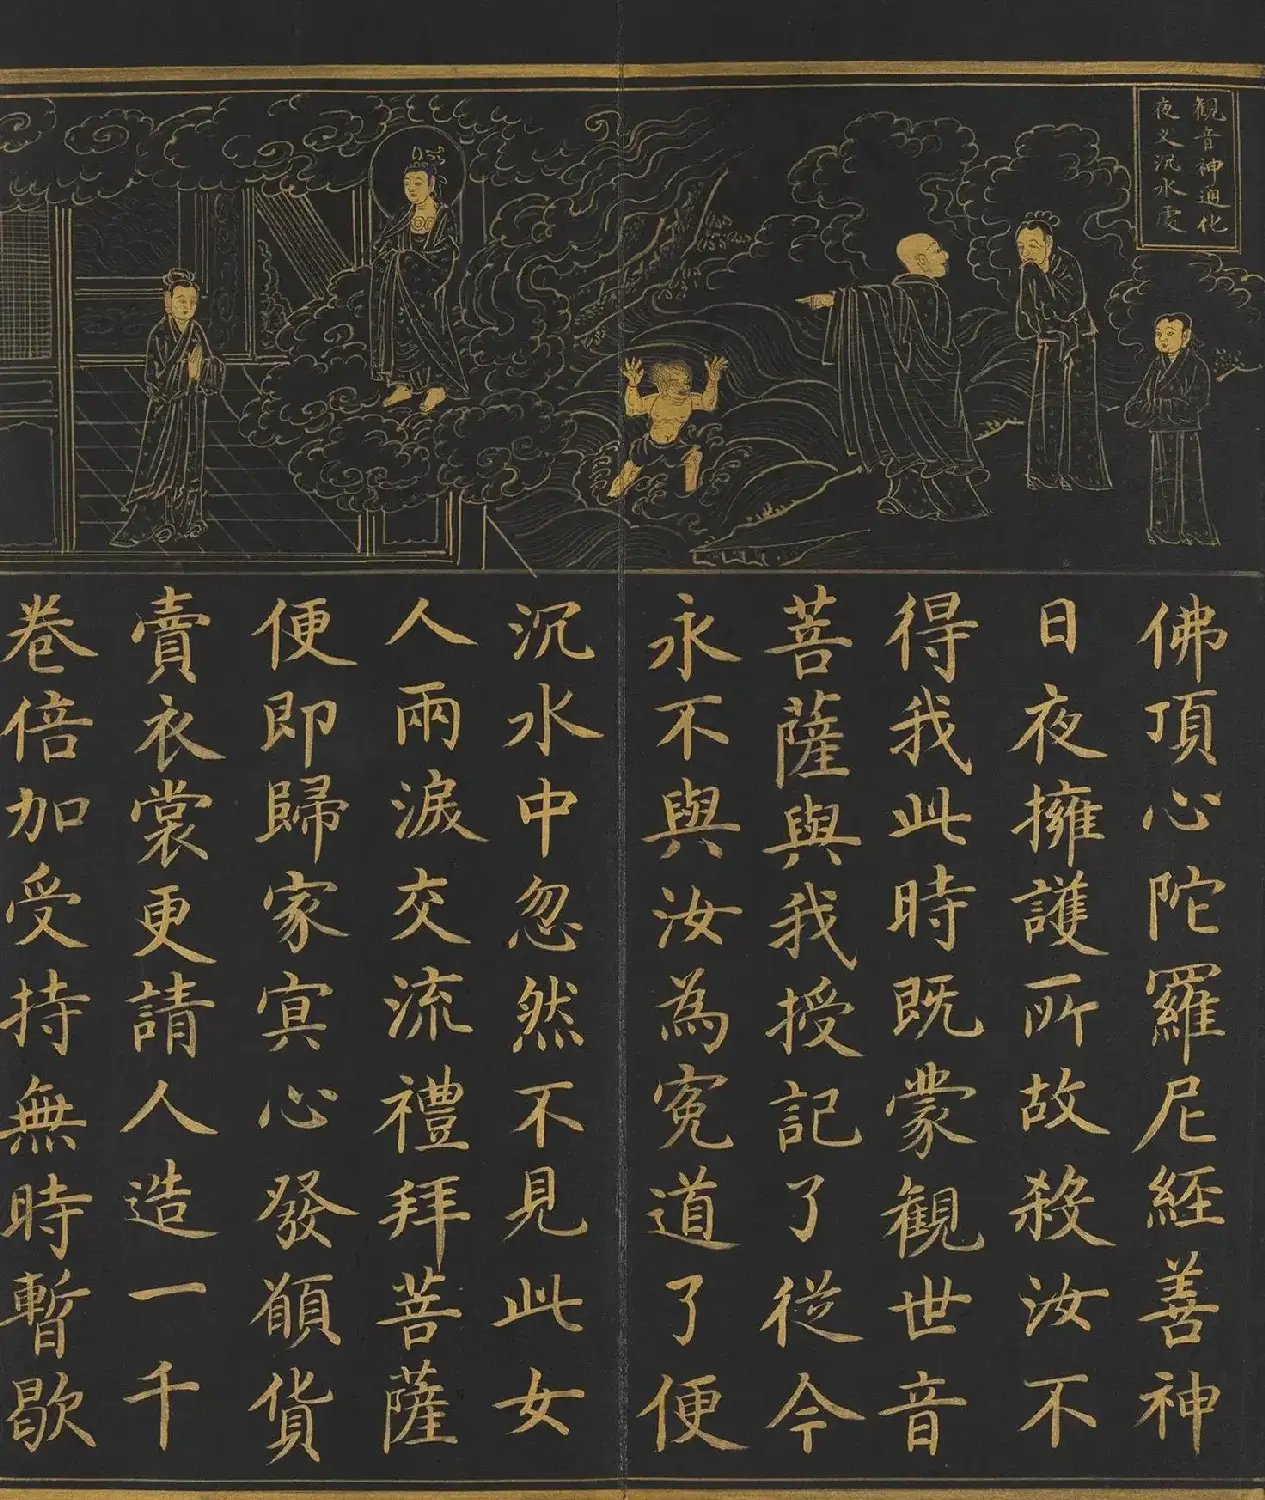 觀音神通化
夜叉沉水處
佛頂心陀羅尼經善神
日夜擁護所故殺汝不
得我此時既蒙觀世音
菩薩與我授記了從今
永不與汝為寃道了便
沉水中忽然不見此女
人兩淚交流禮拜菩薩
便即歸家冥心發願貨
賣衣裳更請人造一千
卷倍加受持無時暫歇